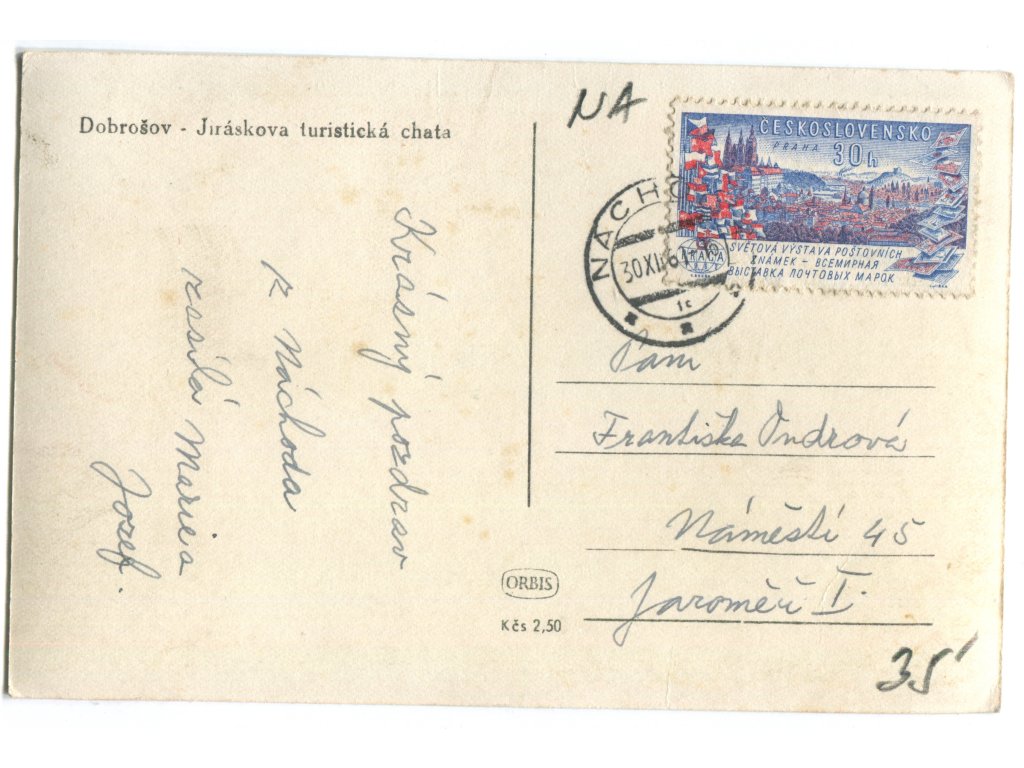 Dobrošov - Jiráskova turistická chata
Krásný pozdrav
z Náchoda
zasílá Marie a
Jozef.
NA
ČESKOSLOVENSKO
PRAHA 30h
SVĚTOVÁ VÝSTAVA POŠTOVNÍCH
ZNÁMEK - ВСЕМИРНАЯ
ВЫСТАВКА ПОЧТОВЫХ МАРОК
NÁCHO
30 XII 61
1c
Paní
Františka Ondrová
Náměstí 45
Jaroměř I.
ORBIS
Kčs 2,50
35'